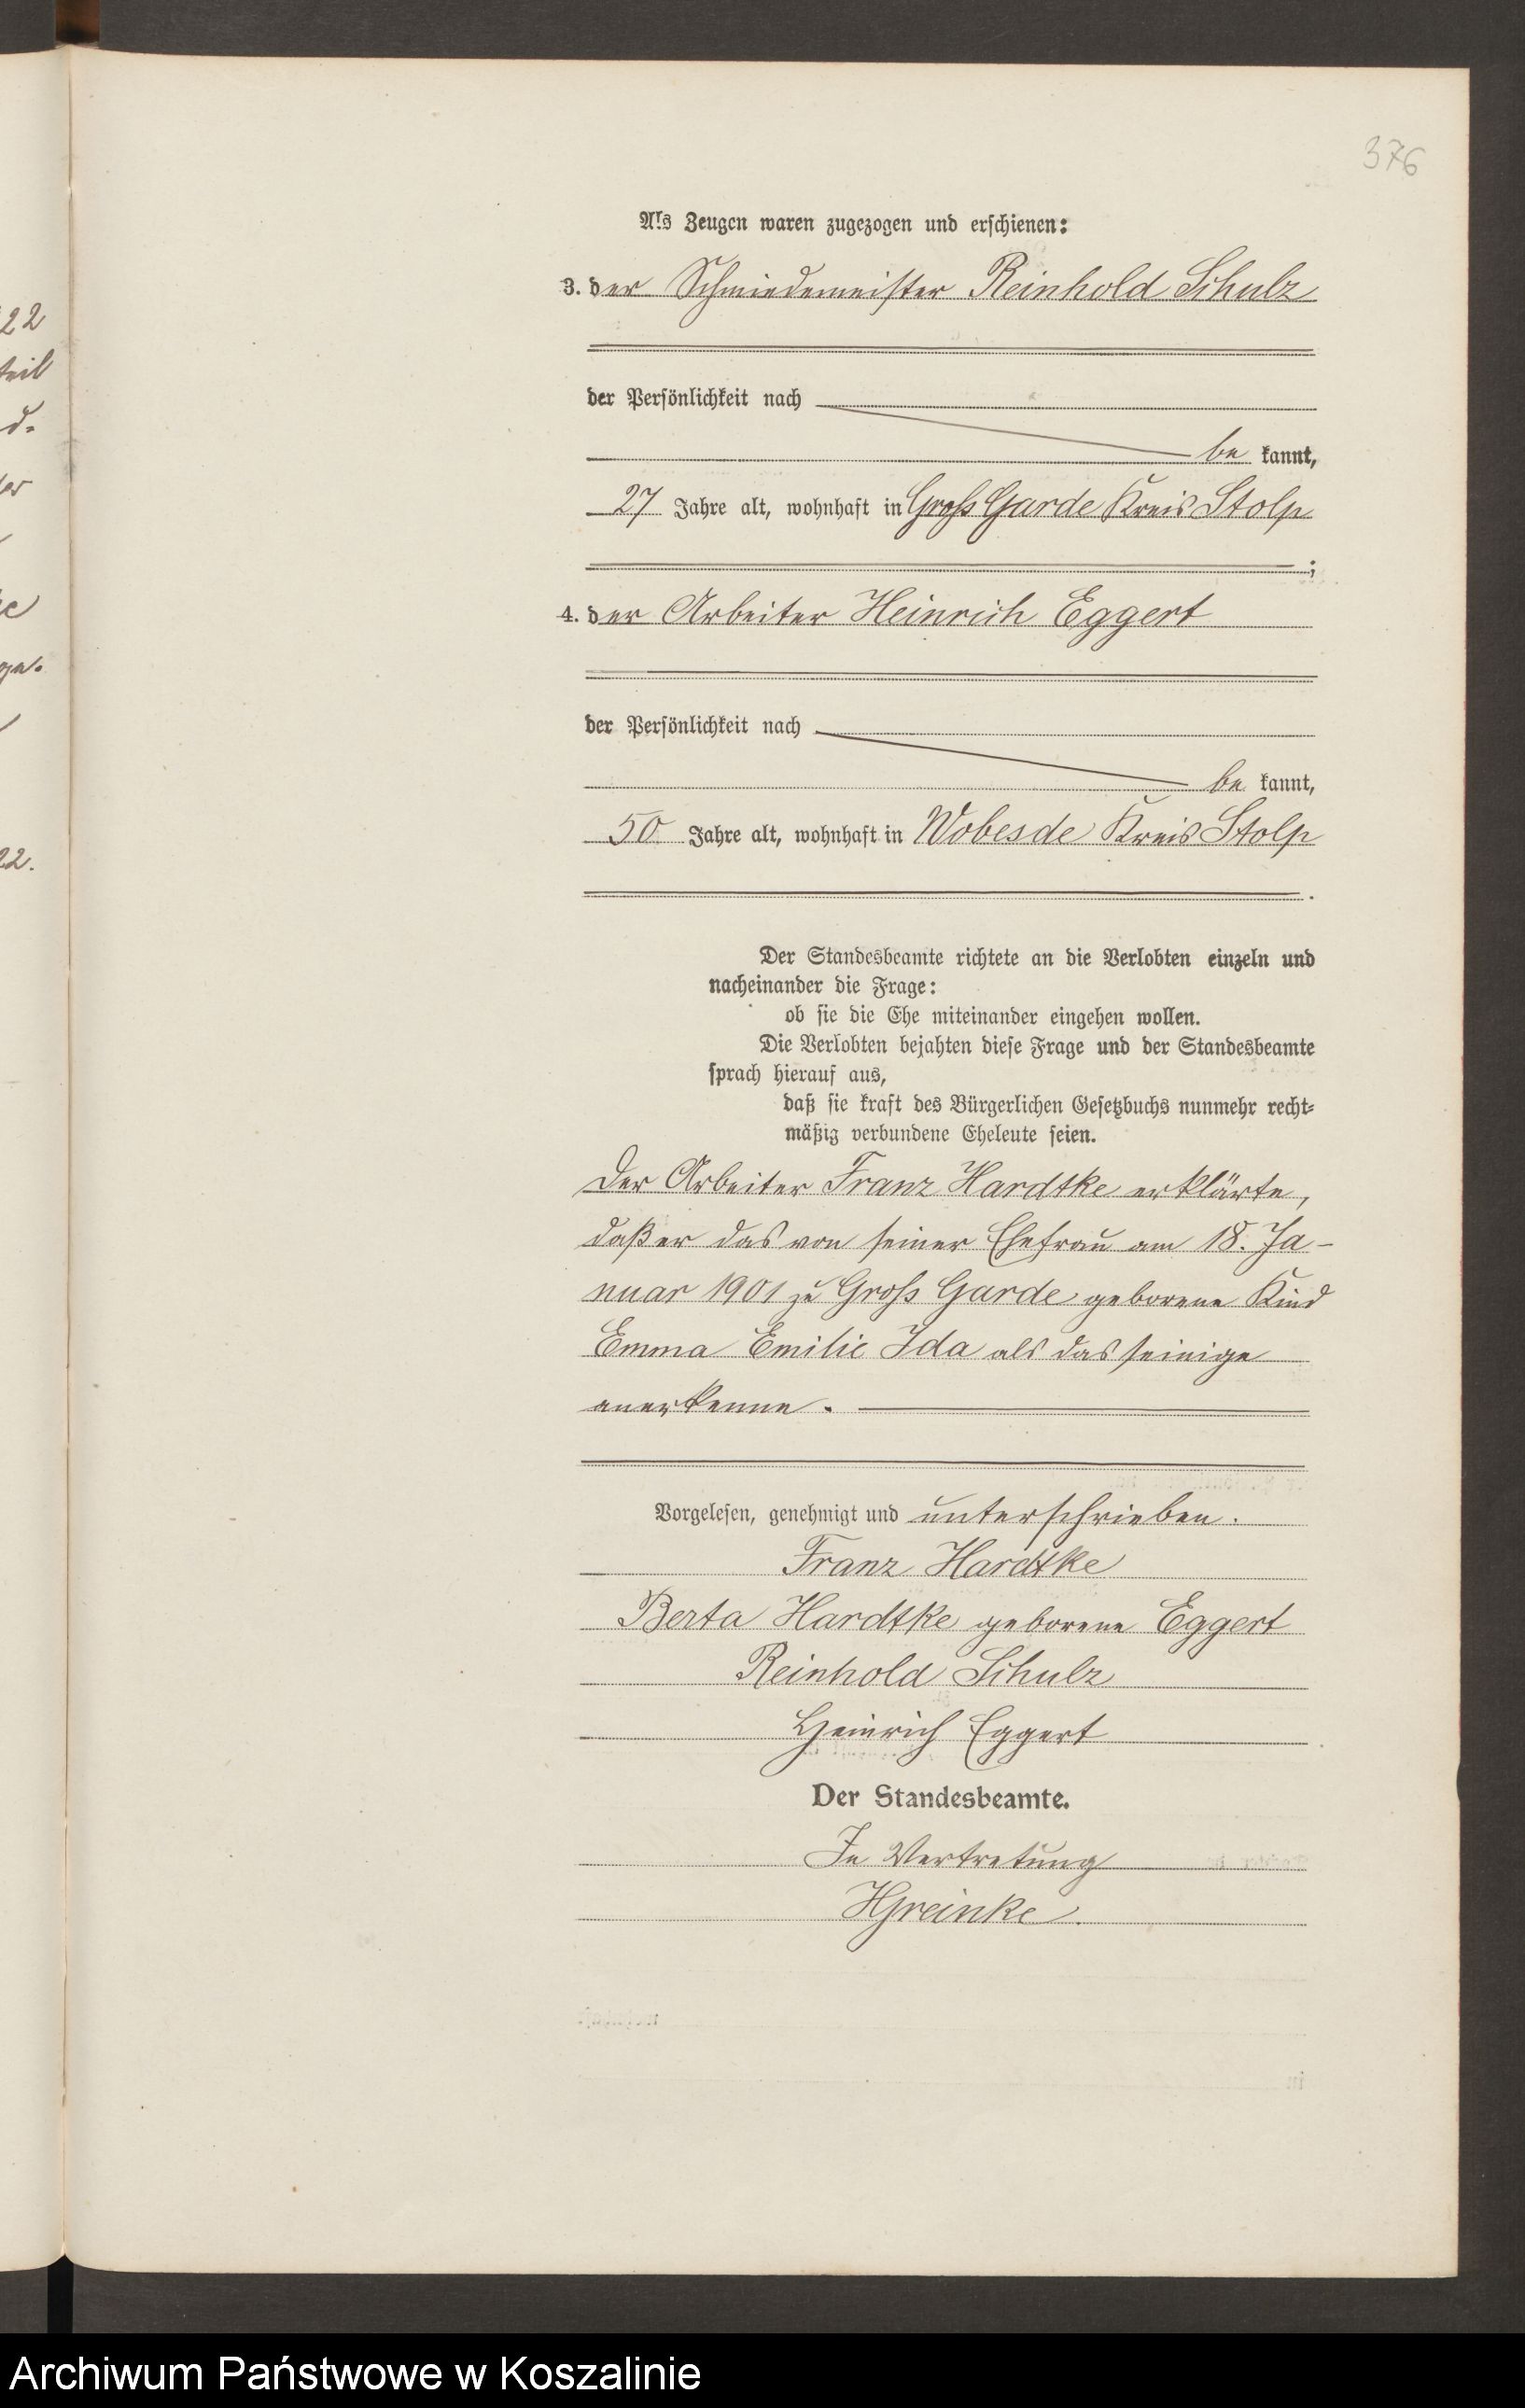 376
Als Zeugen waren zugezogen und erschienen:
3. der Schmiedemeister Reinhold Schulz
der Persönlichkeit nach
be kannt,
27 Jahre alt, wohnhaft in Groß Garde Kreis Stolp
;
4. der Arbeiter Heinrich Eggert
der Persönlichkeit nach
be kannt,
50 Jahre alt, wohnhaft in Wobesde Kreis Stolp
.
Der Standesbeamte richtete an die Verlobten einzeln und
nacheinander die Frage:
ob sie die Ehe miteinander eingehen wollen.
Die Verlobten bejahten diese Frage und der Standesbeamte
sprach hierauf aus,
daß sie kraft des Bürgerlichen Gesetzbuchs nunmehr recht-
mäßig verbundene Eheleute seien.
Der Arbeiter Franz Hardtke erklärte,
daß er das von seiner Ehefrau am 18. Ja-
nuar 1901 zu Groß Garde geborene Kind
Emma Emilie Ida als das seinige
anerkenne.
Vorgelesen, genehmigt und unterschrieben.
Franz Hardtke
Berta Hardtke geborene Eggert
Reinhold Schulz
Heinrich Eggert
Der Standesbeamte.
In Vertretung
HGreinke.
22
teil
d.
22.
Archiwum Państwowe w Koszalinie